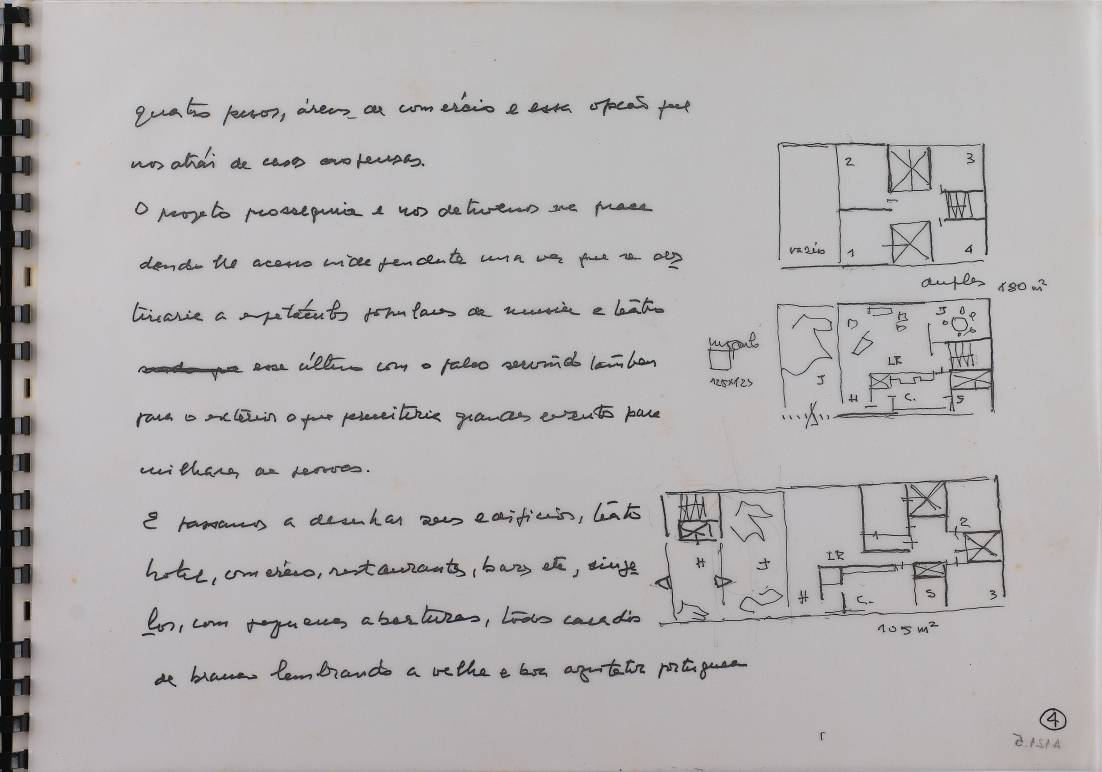 quatro pisos, áreas de comércio e essa opção que
nos atrái de casas suspensas.
O projeto prosseguia e nos detivemos na praça
dando lhe acesso independente uma vez que se des
tinaria a espetáculos populares de musica e teatro
esse último com o palco servindo também
para o exterior o que permitiria grandes eventos para
milhares de pessoas.
E passamos a desenhar seus edifícios, teatro
hotel, comércio, restaurantes, bares etc, singe
los, com pequenas aberturas, todos caiados
de branco lembrando a velha e boa arquitetura portuguesa
2 3
vazio 1 4
duplex 180 m²
J
LR
125x125
J H C. S
1 2
H J LR
H C. S 3
105 m²
4
A121.5